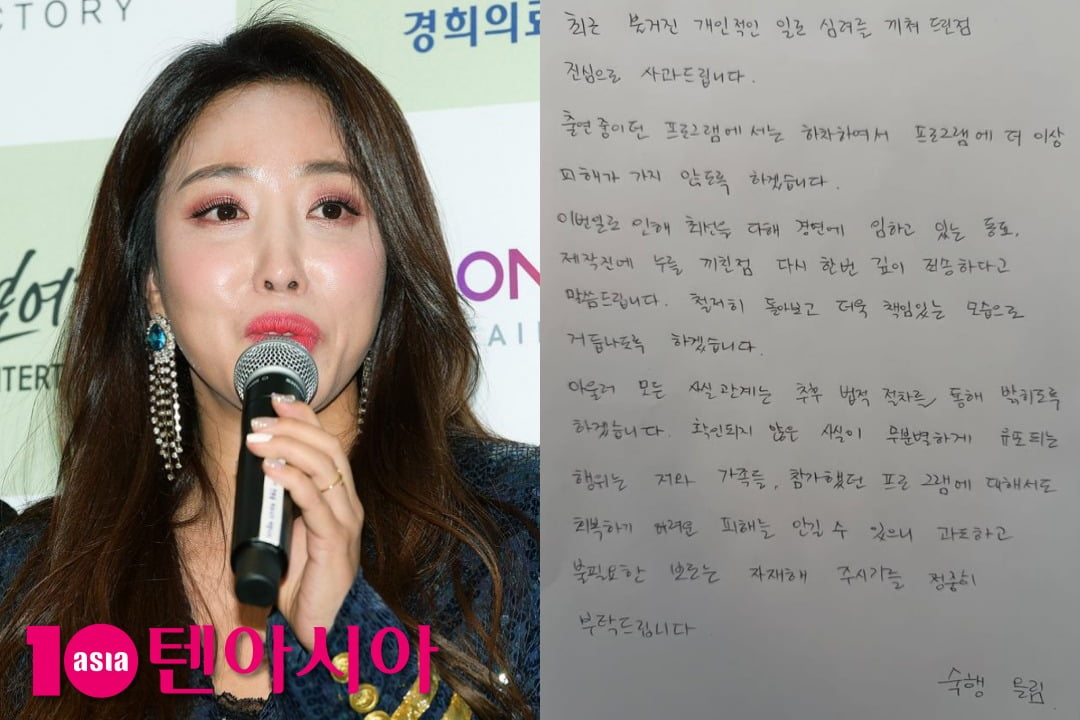 CTORY
경희의료
ON
FAI
NTERT
10
asia
텐아시아
최근 붉거진 개인적인 일로 심려를 끼쳐 드린점
진심으로 사과드립니다.
출연중이던 프로그램에서는 하차하여서 프로그램에 더 이상
피해가 가지 않도록 하겠습니다.
이번일로 인해 최선을 다해 경연에 임하고 있는 동료,
제작진에 누를 끼친점 다시 한번 깊이 죄송하다고
말씀드립니다. 철저히 돌아보고 더욱 책임있는 모습으로
거듭나도록 하겠습니다.
아울러 모든 사실관계는 추후 법적 절차를 통해 밝히도록
하겠습니다. 확인되지 않은 사실이 무분별하게 유포되는
행위는 저와 가족들, 참가했던 프로그램에 대해서도
회복하기 어려운 피해를 안길 수 있으니 과도하고
불필요한 보도는 자제해 주시기를 정중히
부탁드립니다
숙행 올림